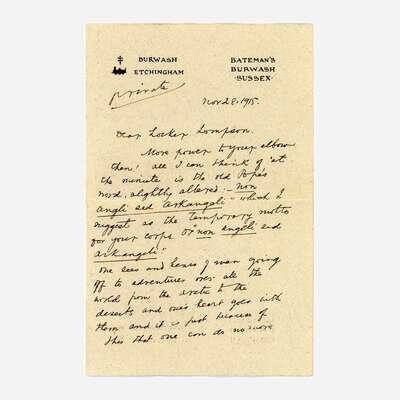 BURWASH
ETCHINGHAM
BATEMAN'S
BURWASH
SUSSEX.
private
Nov 28. 1915.
Dear Locker Lampson.
More power to your elbow
then! all I can think of at
the minute is the old Pope's
word, slightly altered: — non
Angli sed Arkangeli" which I
suggest as the temporary motto
for your corps or non angeli sed
arkangeli"
One sees and hears of men going
off to adventures over all the
world from the arctic to the
deserts and one's heart goes with
them and it is just because of
this that one can do no more